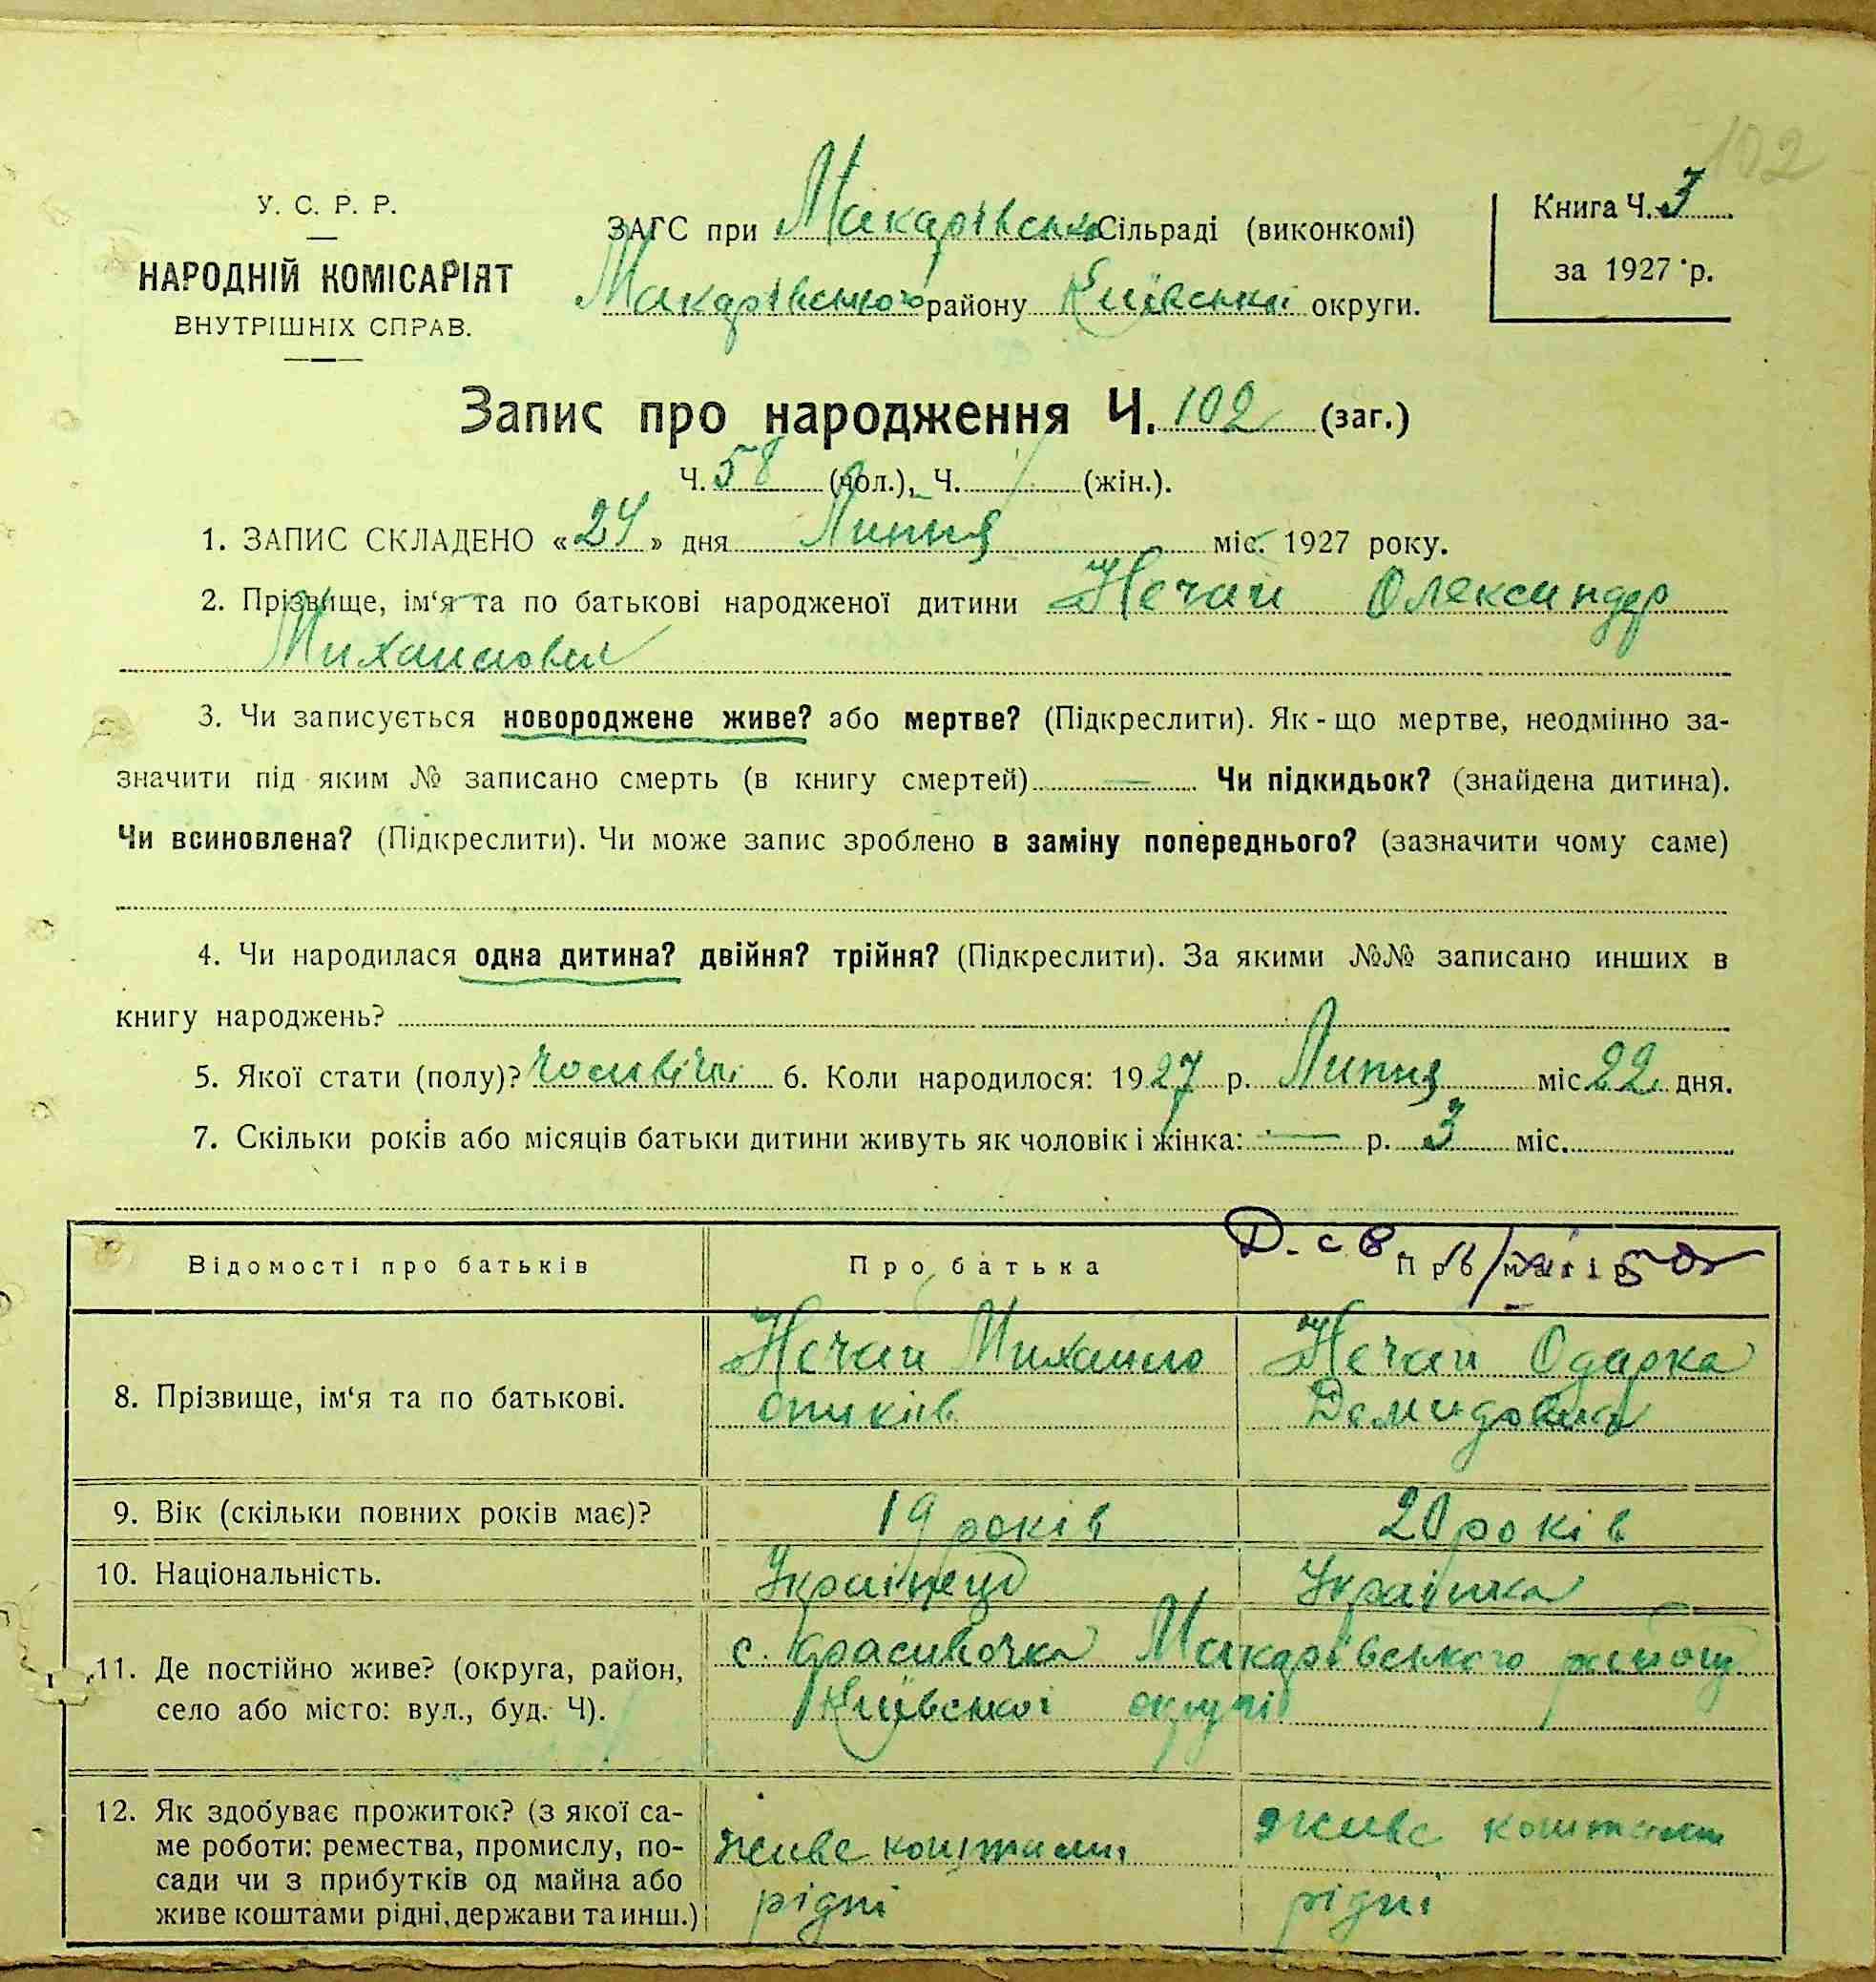 102
У. С. Р. Р.
НАРОДНІЙ КОМІСАРІЯТ
ВНУТРІШНІХ СПРАВ.
ЗАГС при Макарівськ Сільраді (виконкомі)
Макарівського району Київської округи.
Книга Ч. 3
за 1927 р.
Запис про народження Ч. 102 (заг.)
Ч. 58 (чол.), Ч. (жін.).
1. ЗАПИС СКЛАДЕНО «24» дня Липня міс. 1927 року.
2. Прізвище, ім‘я та по батькові народженої дитини Нечай Олександер
Михайлович
3. Чи записується новороджене живе? або мертве? (Підкреслити). Як-що мертве, неодмінно за-
значити під яким № записано смерть (в книгу смертей) — Чи підкидьок? (знайдена дитина).
Чи всиновлена? (Підкреслити). Чи може запис зроблено в заміну попереднього? (зазначити чому саме)
4. Чи народилася одна дитина? двійня? трійня? (Підкреслити). За якими №№ записано инших в
книгу народжень?
5. Якої стати (полу)? чоловічої 6. Коли народилося: 1927 р. Липня міс 22 дня.
7. Скільки років або місяців батьки дитини живуть як чоловік і жінка: — р. 3 міс.
Відомості про батьків Про батька Про матір
Д. с в.
8. Прізвище, ім‘я та по батькові. Нечай Михайло Нечай Одарка
Демидовна
9. Вік (скільки повних років має)? 19 років 20 років
10. Національність. Українець Українка
11. Де постійно живе? (округа, район, с. Макарівського району
село або місто: вул., буд. Ч). Київської округи
12. Як здобуває прожиток? (з якої са-
ме роботи: ремества, промислу, по- живе коштами живе коштами
сади чи з прибутків од майна або
живе коштами рідні, держави та инш.) рідні рідні